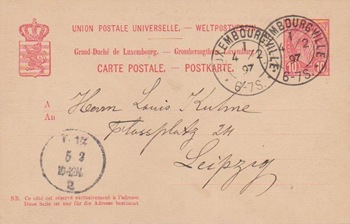 UNION POSTALE UNIVERSELLE. — WELTPOSTVEREIN.
Grand-Duché de Luxembourg. — Grossherzogthum Luxemburg.
CARTE POSTALE. — POSTKARTE.
LUXEMBOURG-VILLE
1
4 / 2
97
6-7S.
LUXEMBOURG-VILLE
1
4 / 2
97
6-7S.
A
An
Herrn Louis Kuhne
Flossplatz 24
Leipzig
5 2
2
NB. Ce côté est réservé exclusivement à l'adresse.
Diese Seite ist nur für die Adresse bestimmt